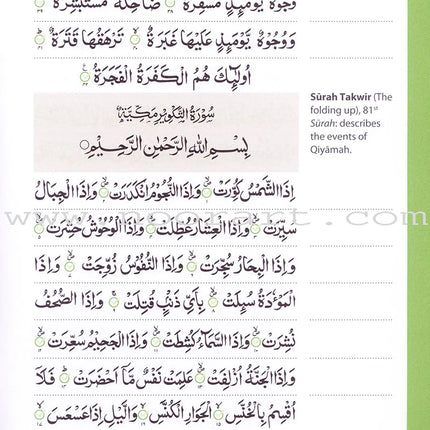 وُجُوْهٌ يَّوْمَىِٕذٍ مُّسْفِرَةٌ ضَاحِكَةٌ مُّسْتَبْشِرَةٌ
وَوُجُوْهٌ يَّوْمَىِٕذٍ عَلَيْهَا غَبَرَةٌ تَرْهَقُهَا قَتَرَةٌ
اُولٰٓىِٕكَ هُمُ الْكَفَرَةُ الْفَجَرَةُ
سُوْرَةُ التَّكْوِيْرِ مَكِّيَّةٌ
بِسْمِ اللّٰهِ الرَّحْمٰنِ الرَّحِيْمِ
Sūrah Takwir (The
folding up), 81st
Sūrah: describes
the events of
Qiyāmah.
اِذَا الشَّمْسُ كُوِّرَتْ وَاِذَا النُّجُوْمُ انْكَدَرَتْ وَاِذَا الْجِبَالُ
www.noorart.com
سُيِّرَتْ وَاِذَا الْعِشَارُ عُطِّلَتْ وَاِذَا الْوُحُوْشُ حُشِرَتْ
وَاِذَا الْبِحَارُ سُجِّرَتْ وَاِذَا النُّفُوْسُ زُوِّجَتْ وَاِذَا
الْمَوْءٗدَةُ سُىِٕلَتْ بِاَيِّ ذَنْۢبٍ قُتِلَتْ وَاِذَا الصُّحُفُ
نُشِرَتْ وَاِذَا السَّمَآءُ كُشِطَتْ وَاِذَا الْجَحِيْمُ سُعِّرَتْ
وَاِذَا الْجَنَّةُ اُزْلِفَتْ عَلِمَتْ نَفْسٌ مَّآ اَحْضَرَتْ فَلَآ
اُقْسِمُ بِالْخُنَّسِ الْجَوَارِ الْكُنَّسِ وَالَّيْلِ اِذَا عَسْعَسَ